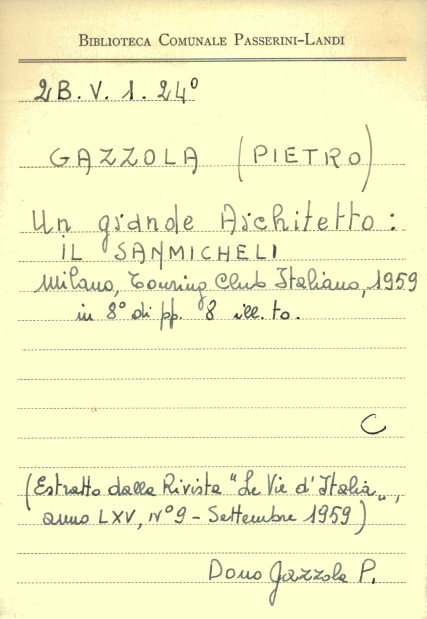 BIBLIOTECA COMUNALE PASSERINI-LANDI
2B. V. 1. 24°
GAZZOLA (PIETRO)
Un grande Architetto:
IL SANMICHELI
Milano, Touring Club Italiano, 1959
in 8° di pp. 8 ill. to.
C
(Estratto dalla Rivista "Le Vie d'Italia„,
anno LXV, N° 9 - Settembre 1959)
Dono Gazzola P.